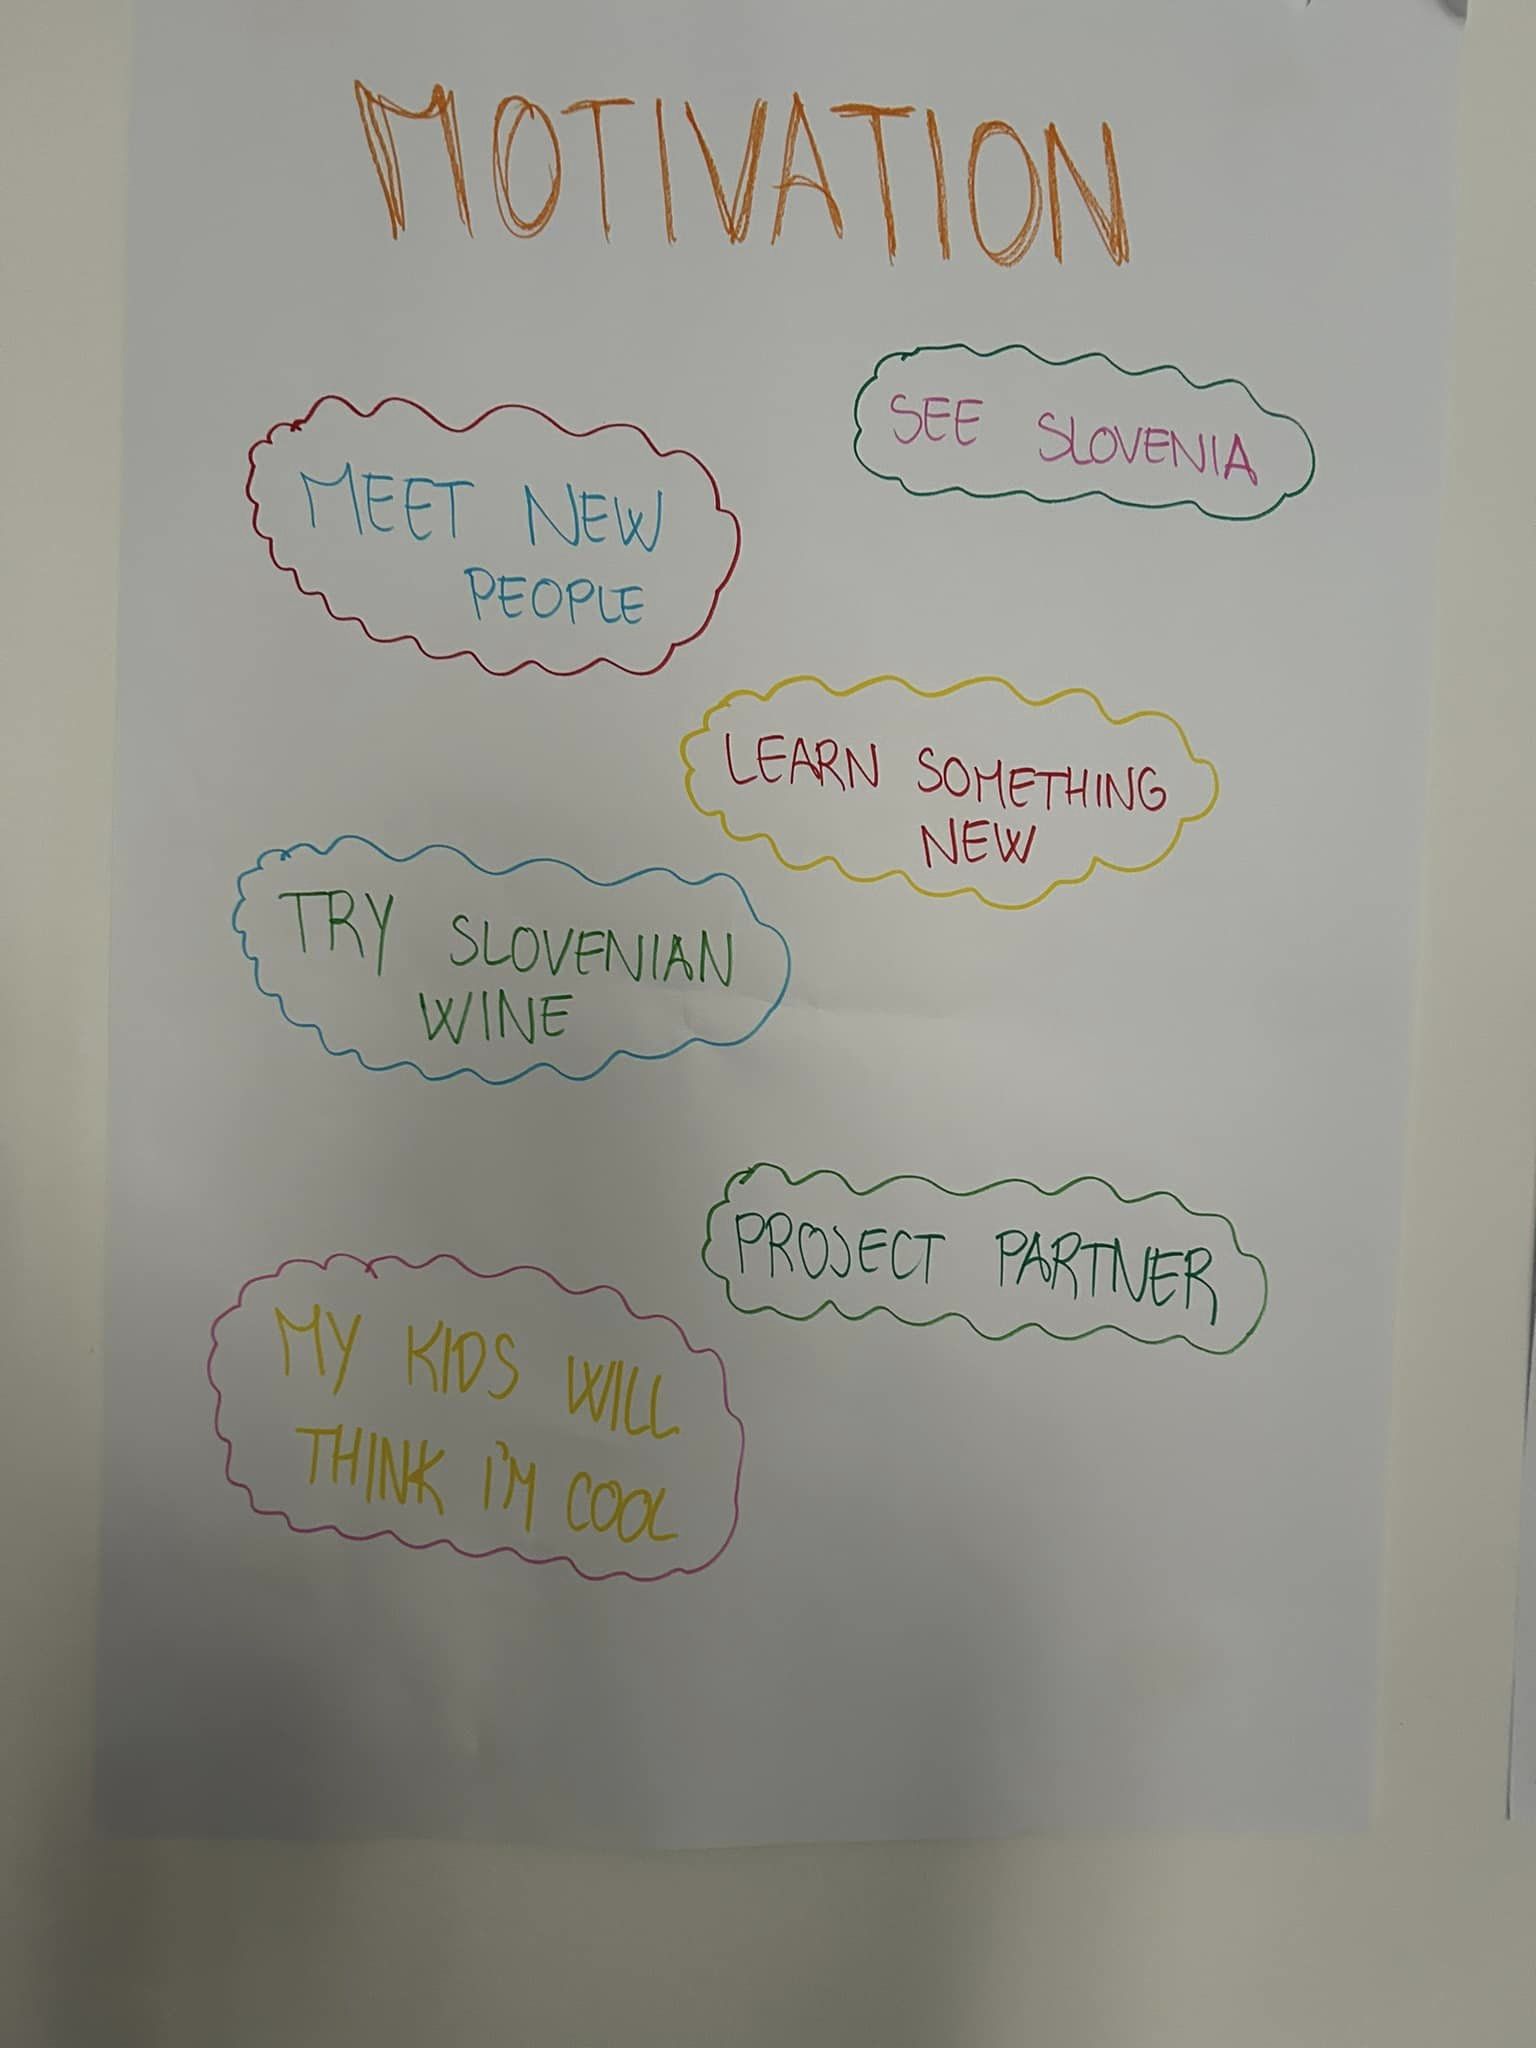 MOTIVATION
SEE SLOVENIA
MEET NEW
PEOPLE
LEARN SOMETHING
NEW
TRY SLOVENIAN
WINE
PROJECT PARTNER
MY KIDS WILL
THINK I'M COOL